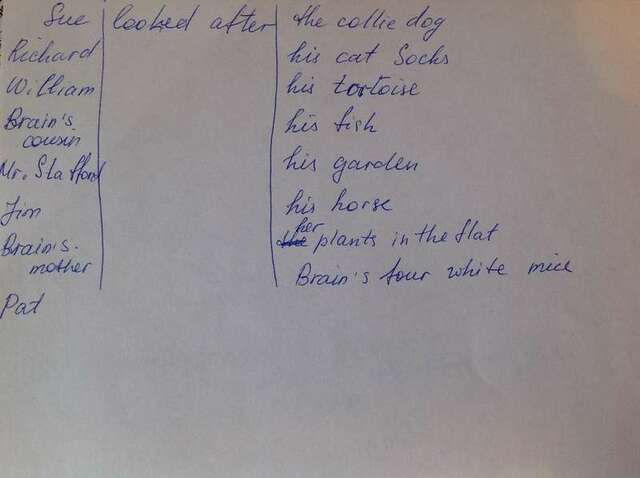 Sue looked after the collie dog
Richard his cat Socks
William his tortoise
Brain's his fish
cousin
Mr. Stafford his garden
Jim his horse
her
the plants in the flat
Brain's
mother Brain's four white mice
Pat